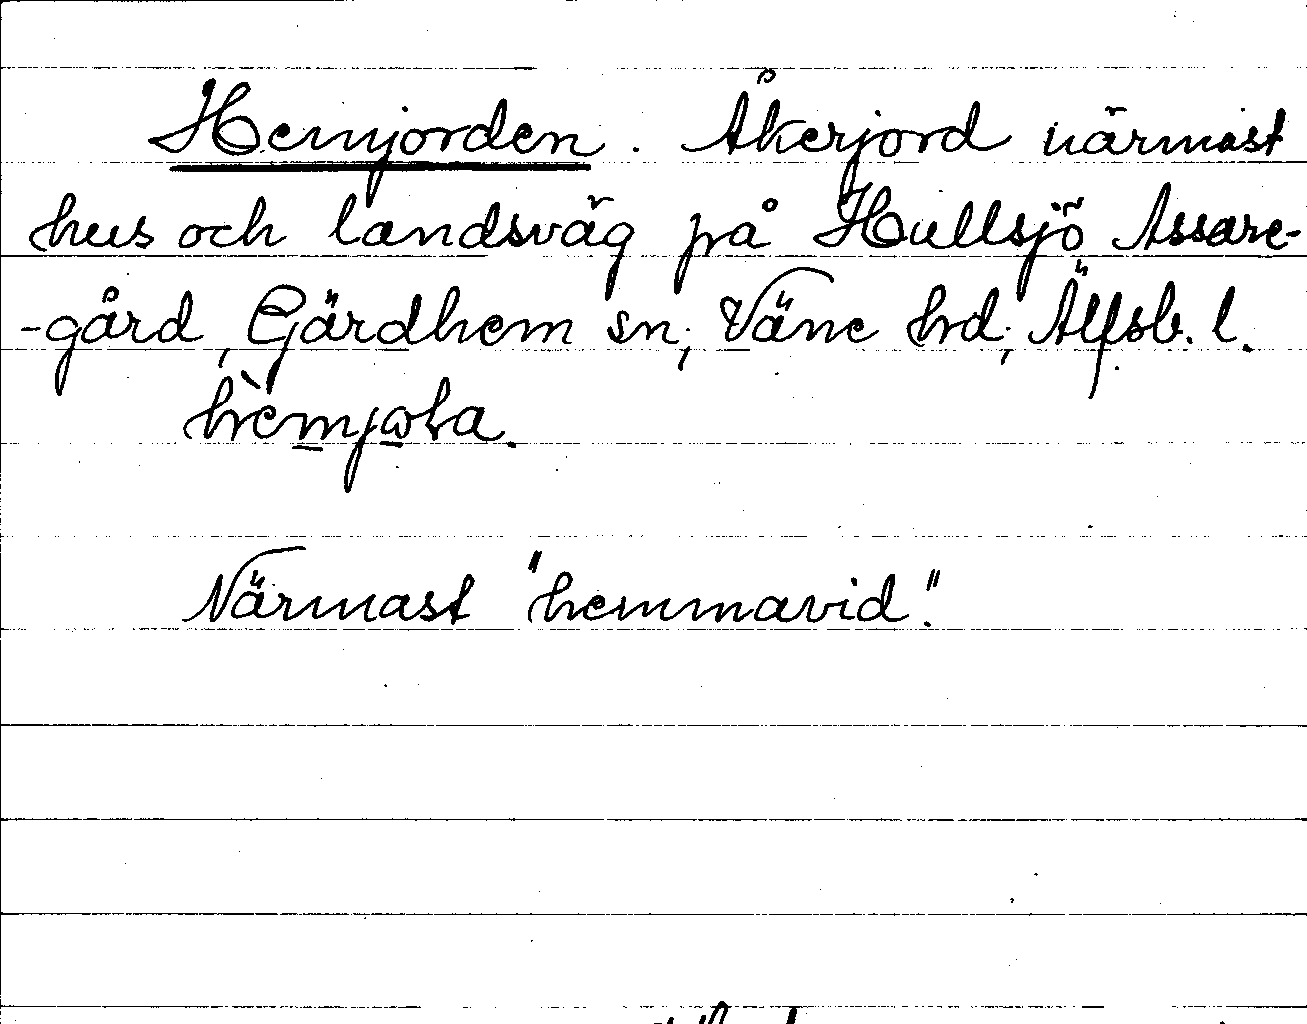 Hemjorden. Åkerjord närmast
hus och landsväg på Hullsjö Assare-
-gård, Gärdhem sn, Väne hrd, Älfsb. l.
Närmast "hemmavid".